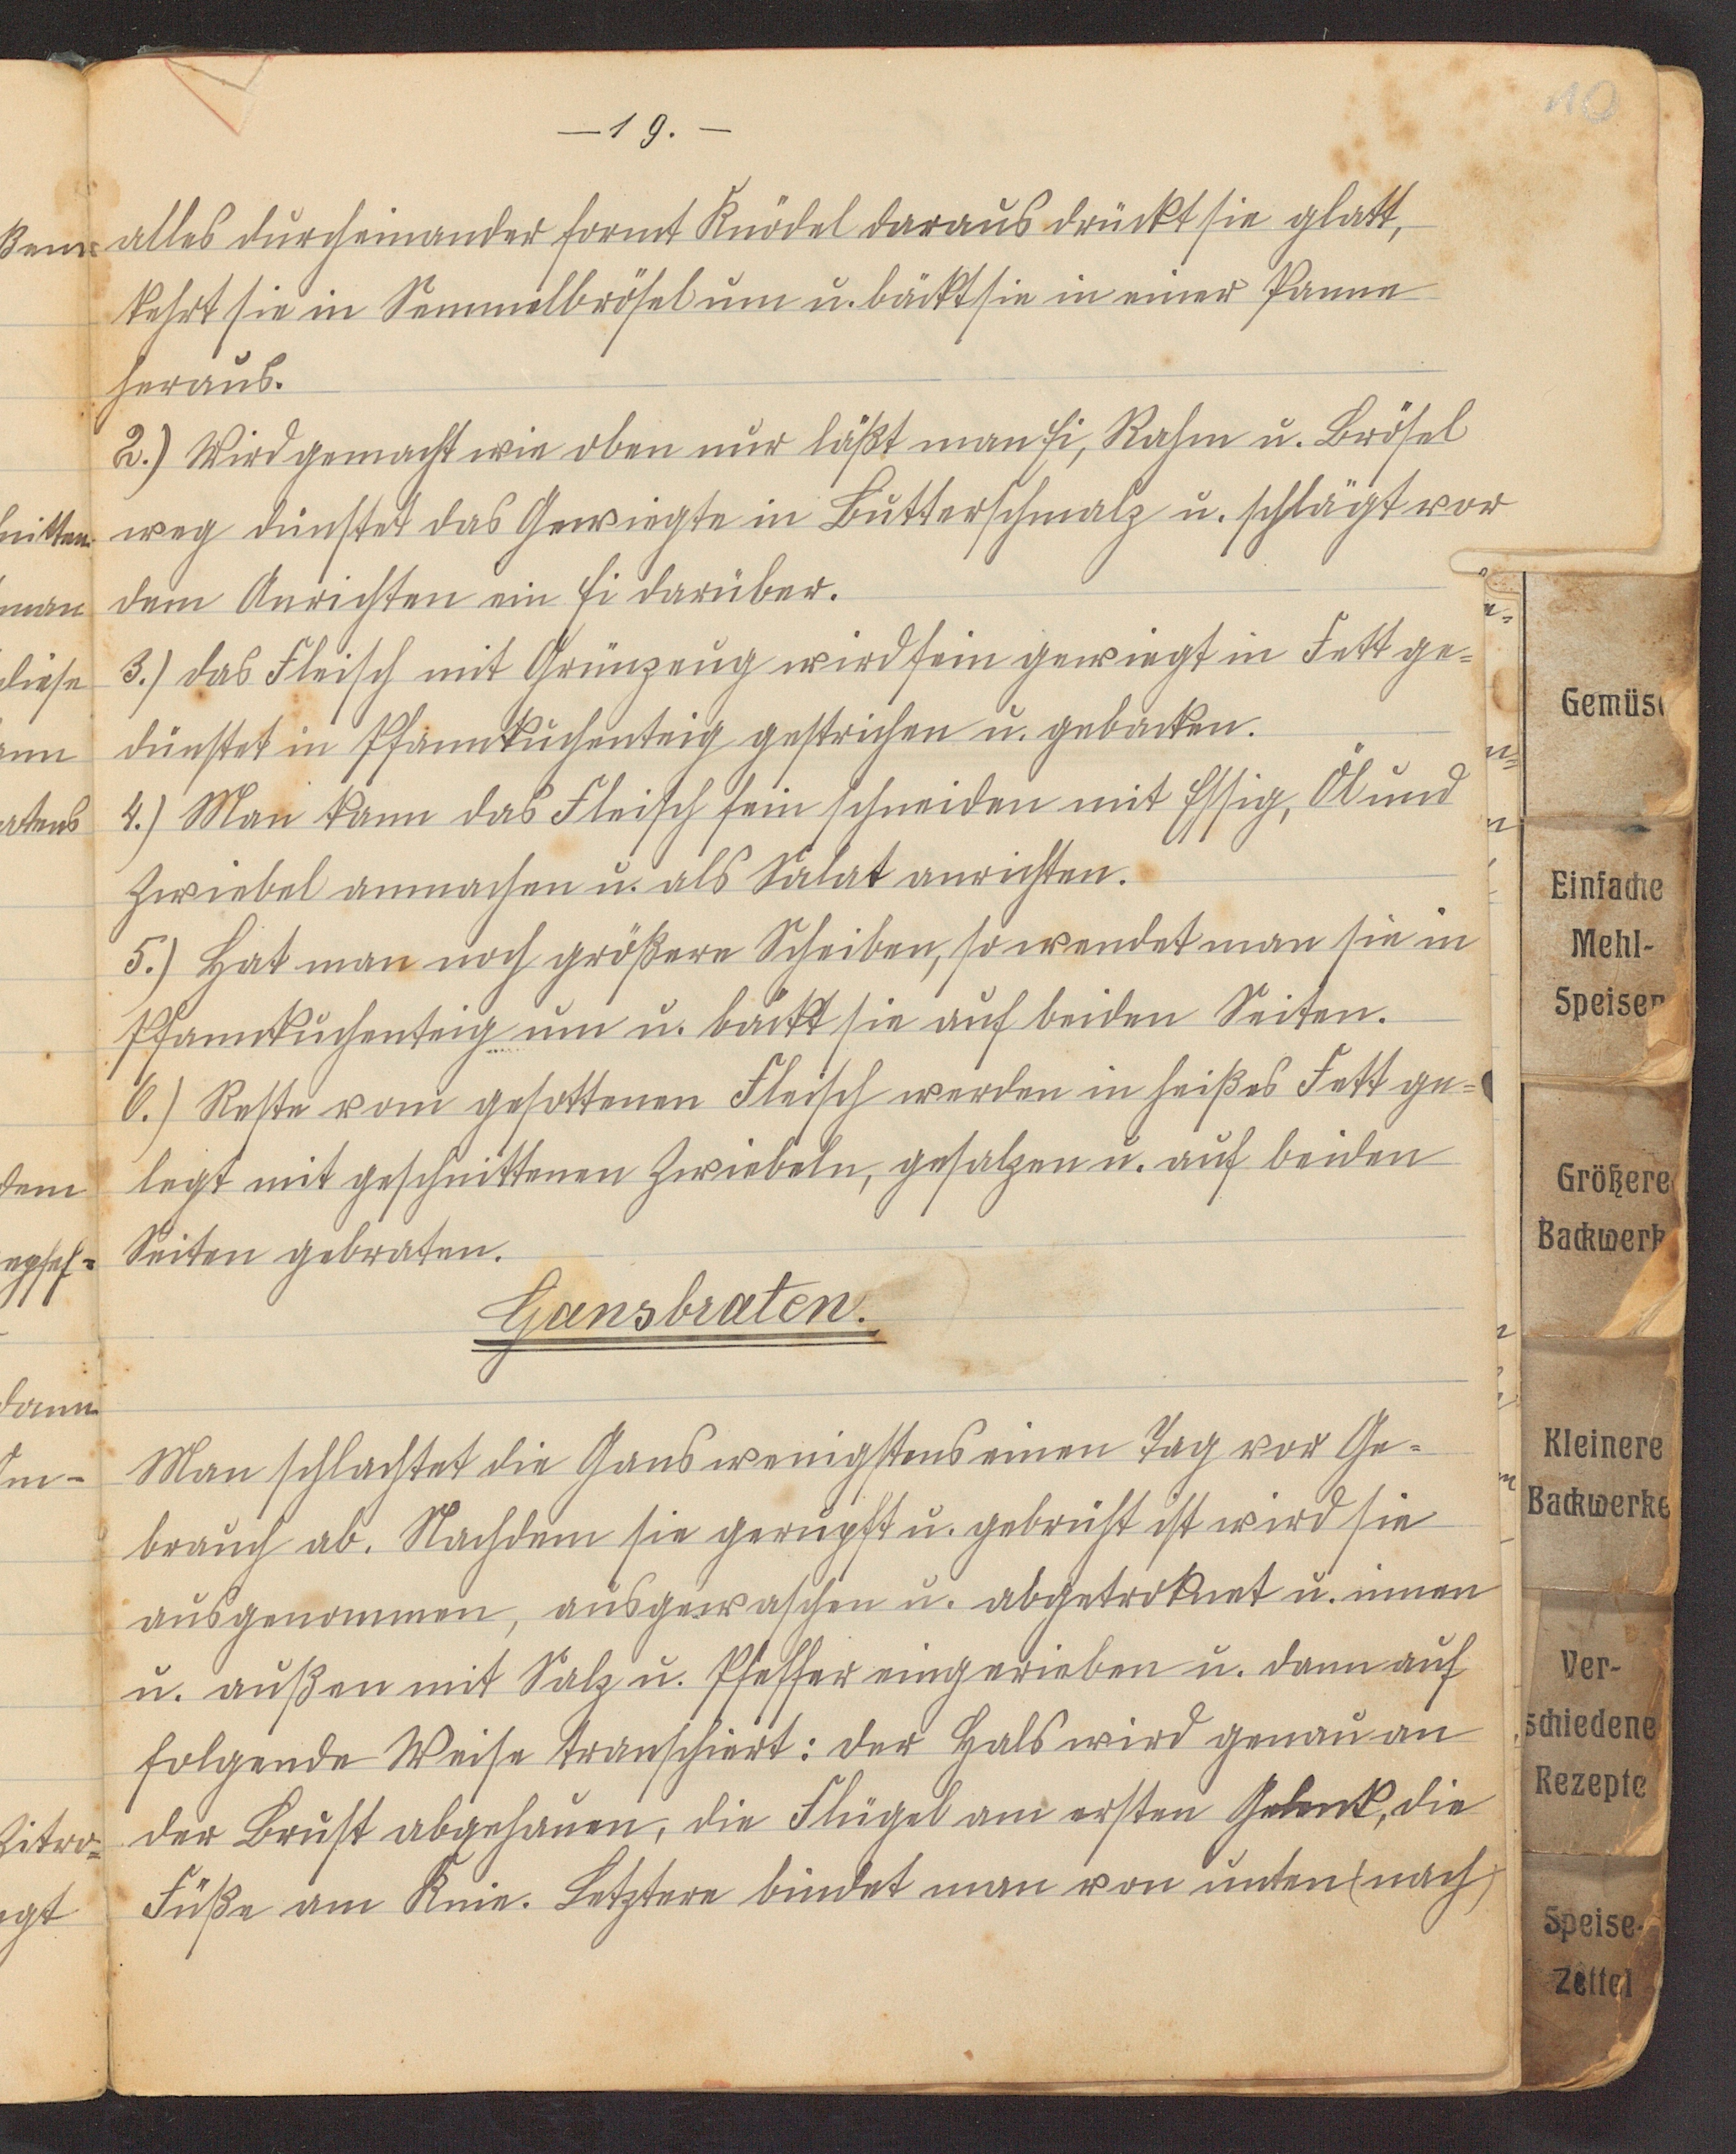 10
— 19. —
alles durcheinander formt Knödel daraus drückt sie glatt,
kehrt sie in Semmelbrösel um u. bäckt sie in einer Panne
heraus.
2.) Wird gemacht wie oben nur läßt man Ei, Rahm u. Brösel
weg dünstet das Gewiegte in Butterschmalz u. schlägt vor
dem Anrichten ein Ei darüber.
3.) das Fleisch mit Grünzeug wird fein gewiegt in Fett ge=
dünstet in Pfannkuchenteig gestrichen u. gebacken.
4.) Man kann das Fleisch fein schneiden mit Essig, Öl und
Zwiebel anmachen u. als Salat anrichten.
5.) Hat man noch größere Scheiben, so wendet man sie in
Pfannkuchenteig um u. bäckt sie auf beiden Seiten.
6.) Reste vom gesottenen Fleisch werden in heißes Fett ge=
legt mit geschnittenen Zwiebeln, gesalzen u. auf beiden
Seiten gebraten.
Gansbraten.
Man schlachtet die Gans wenigstens einen Tag vor Ge=
brauch ab. Nachdem sie gerupft u. gebrüht ist wird sie
ausgenommen, ausgewaschen u. abgetroknet u. innen
u. außen mit Salz u. Pfeffer eingerieben u. dann auf
folgende Weise transchiert: der Hals wird genau an
der Brust abgehauen, die Flügel am ersten Gelenk, die
Füße am Knie. Letztere bindet man von unten (nach)
nitten
man
diese
atens
dem
dann
Zitro=
Gemüse
Einfache
Mehl-
Speisen
Größere
Backwerk
Kleinere
Backwerke
Ver-
schiedene
Rezepte
Speise-
Zettel